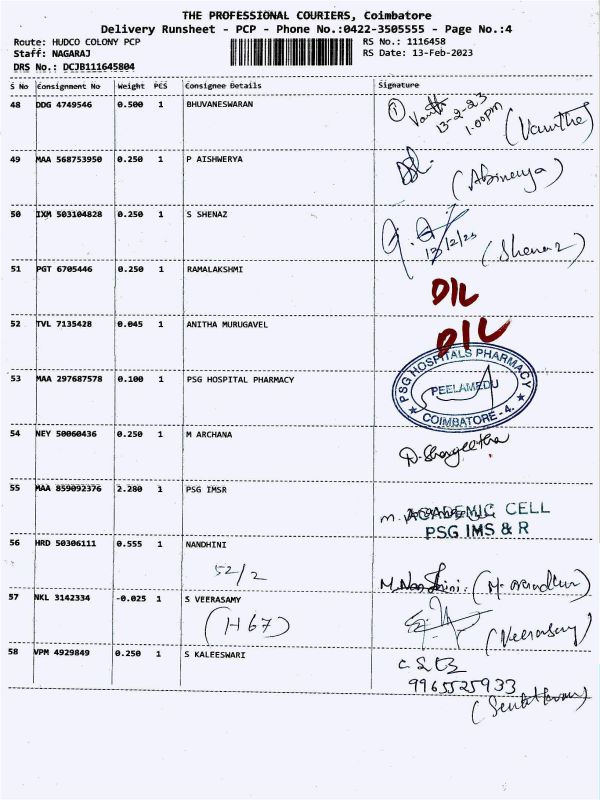 THE PROFESSIONAL COURIERS, Coimbatore
Delivery Runsheet - PCP - Phone No.:0422-3505555 - Page No.:4
Route: HUDCO COLONY PCP RS No.: 1116458
Staff: NAGARAJ RS Date: 13-Feb-2023
DRS No.: DCJB111645804
S No Consignment No Weight PCS Consignee Details Signature
48 DDG 4749546 0.500 1 BHUVANESWARAN
① 13-2-23
1.00pm
49 MAA 568753950 0.250 1 P AISHWERYA
50 IXM 503104828 0.250 1 S SHENAZ
13/2/23 (Shenaz)
51 PGT 6705446 0.250 1 RAMALAKSHMI
D/L
52 TVL 7135428 0.045 1 ANITHA MURUGAVEL
D/L
53 MAA 297687578 0.100 1 PSG HOSPITAL PHARMACY
PSG HOSPITALS PHARMACY
PEELAMEDU
COIMBATORE - 4.
54 NEY 50060436 0.250 1 M ARCHANA
D. Sangeetha
55 MAA 859092376 2.280 1 PSG IMSR
ACADEMIC CELL
PSG IMS & R
56 HRD 50306111 0.555 1 NANDHINI
52/2 M. Nandhini.
57 NKL 3142334 -0.025 1 S VEERASAMY
(H 67) (Veerasamy)
58 VPM 4929849 0.250 1 S KALEESWARI
9965525933